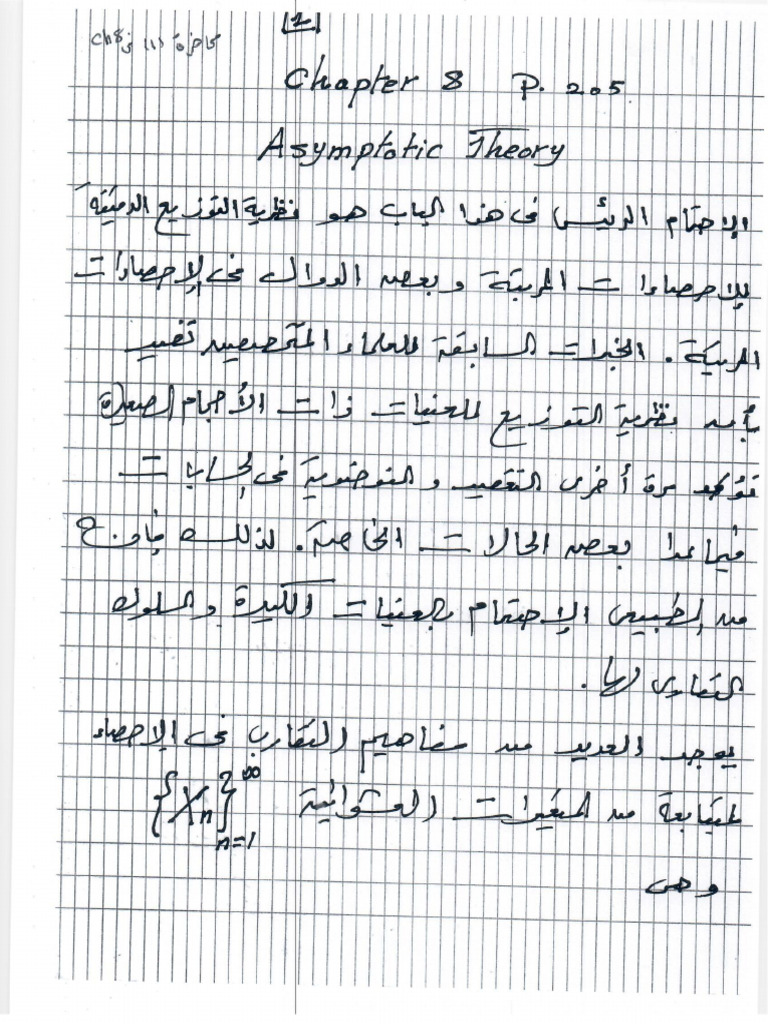 [1]
محاضرة (1) في Ch8
Chapter 8 P. 205
Asymptotic Theory
الاهتمام الرئيسى فى هذا الباب هو نظرية التوزيع الدقيقة
للإحصاءات المرتبة وبعض الدوال فى الإحصاءات
المرتبة. الخبرات السابقة للعلماء المتخصصين تفيد
بأن نظرية التوزيع للعينات ذات الأحجام الصغيرة
تؤكد مرة أخرى التعقيد و فى الحسابات
فيما عدا بعض الحالات الخاصة. لذلك فإنه
من الطبيعى الاهتمام بالعينات الكبيرة والسلوك
التقاربى لها.
يوجد العديد من مفاهيم التقارب فى الإحصاء
لمتتابعة من المتغيرات العشوائية {Xn}∞n=1
وهى